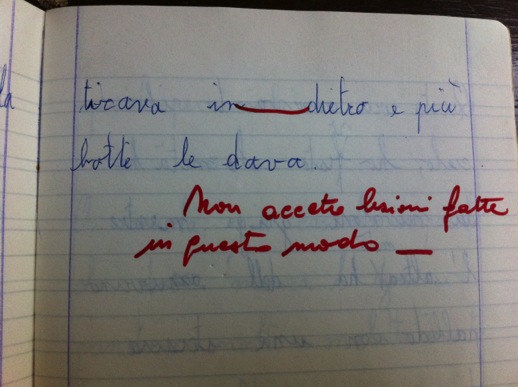 la tirava in dietro e più
botte le dava.
Non accetto lezioni fatte
in questo modo